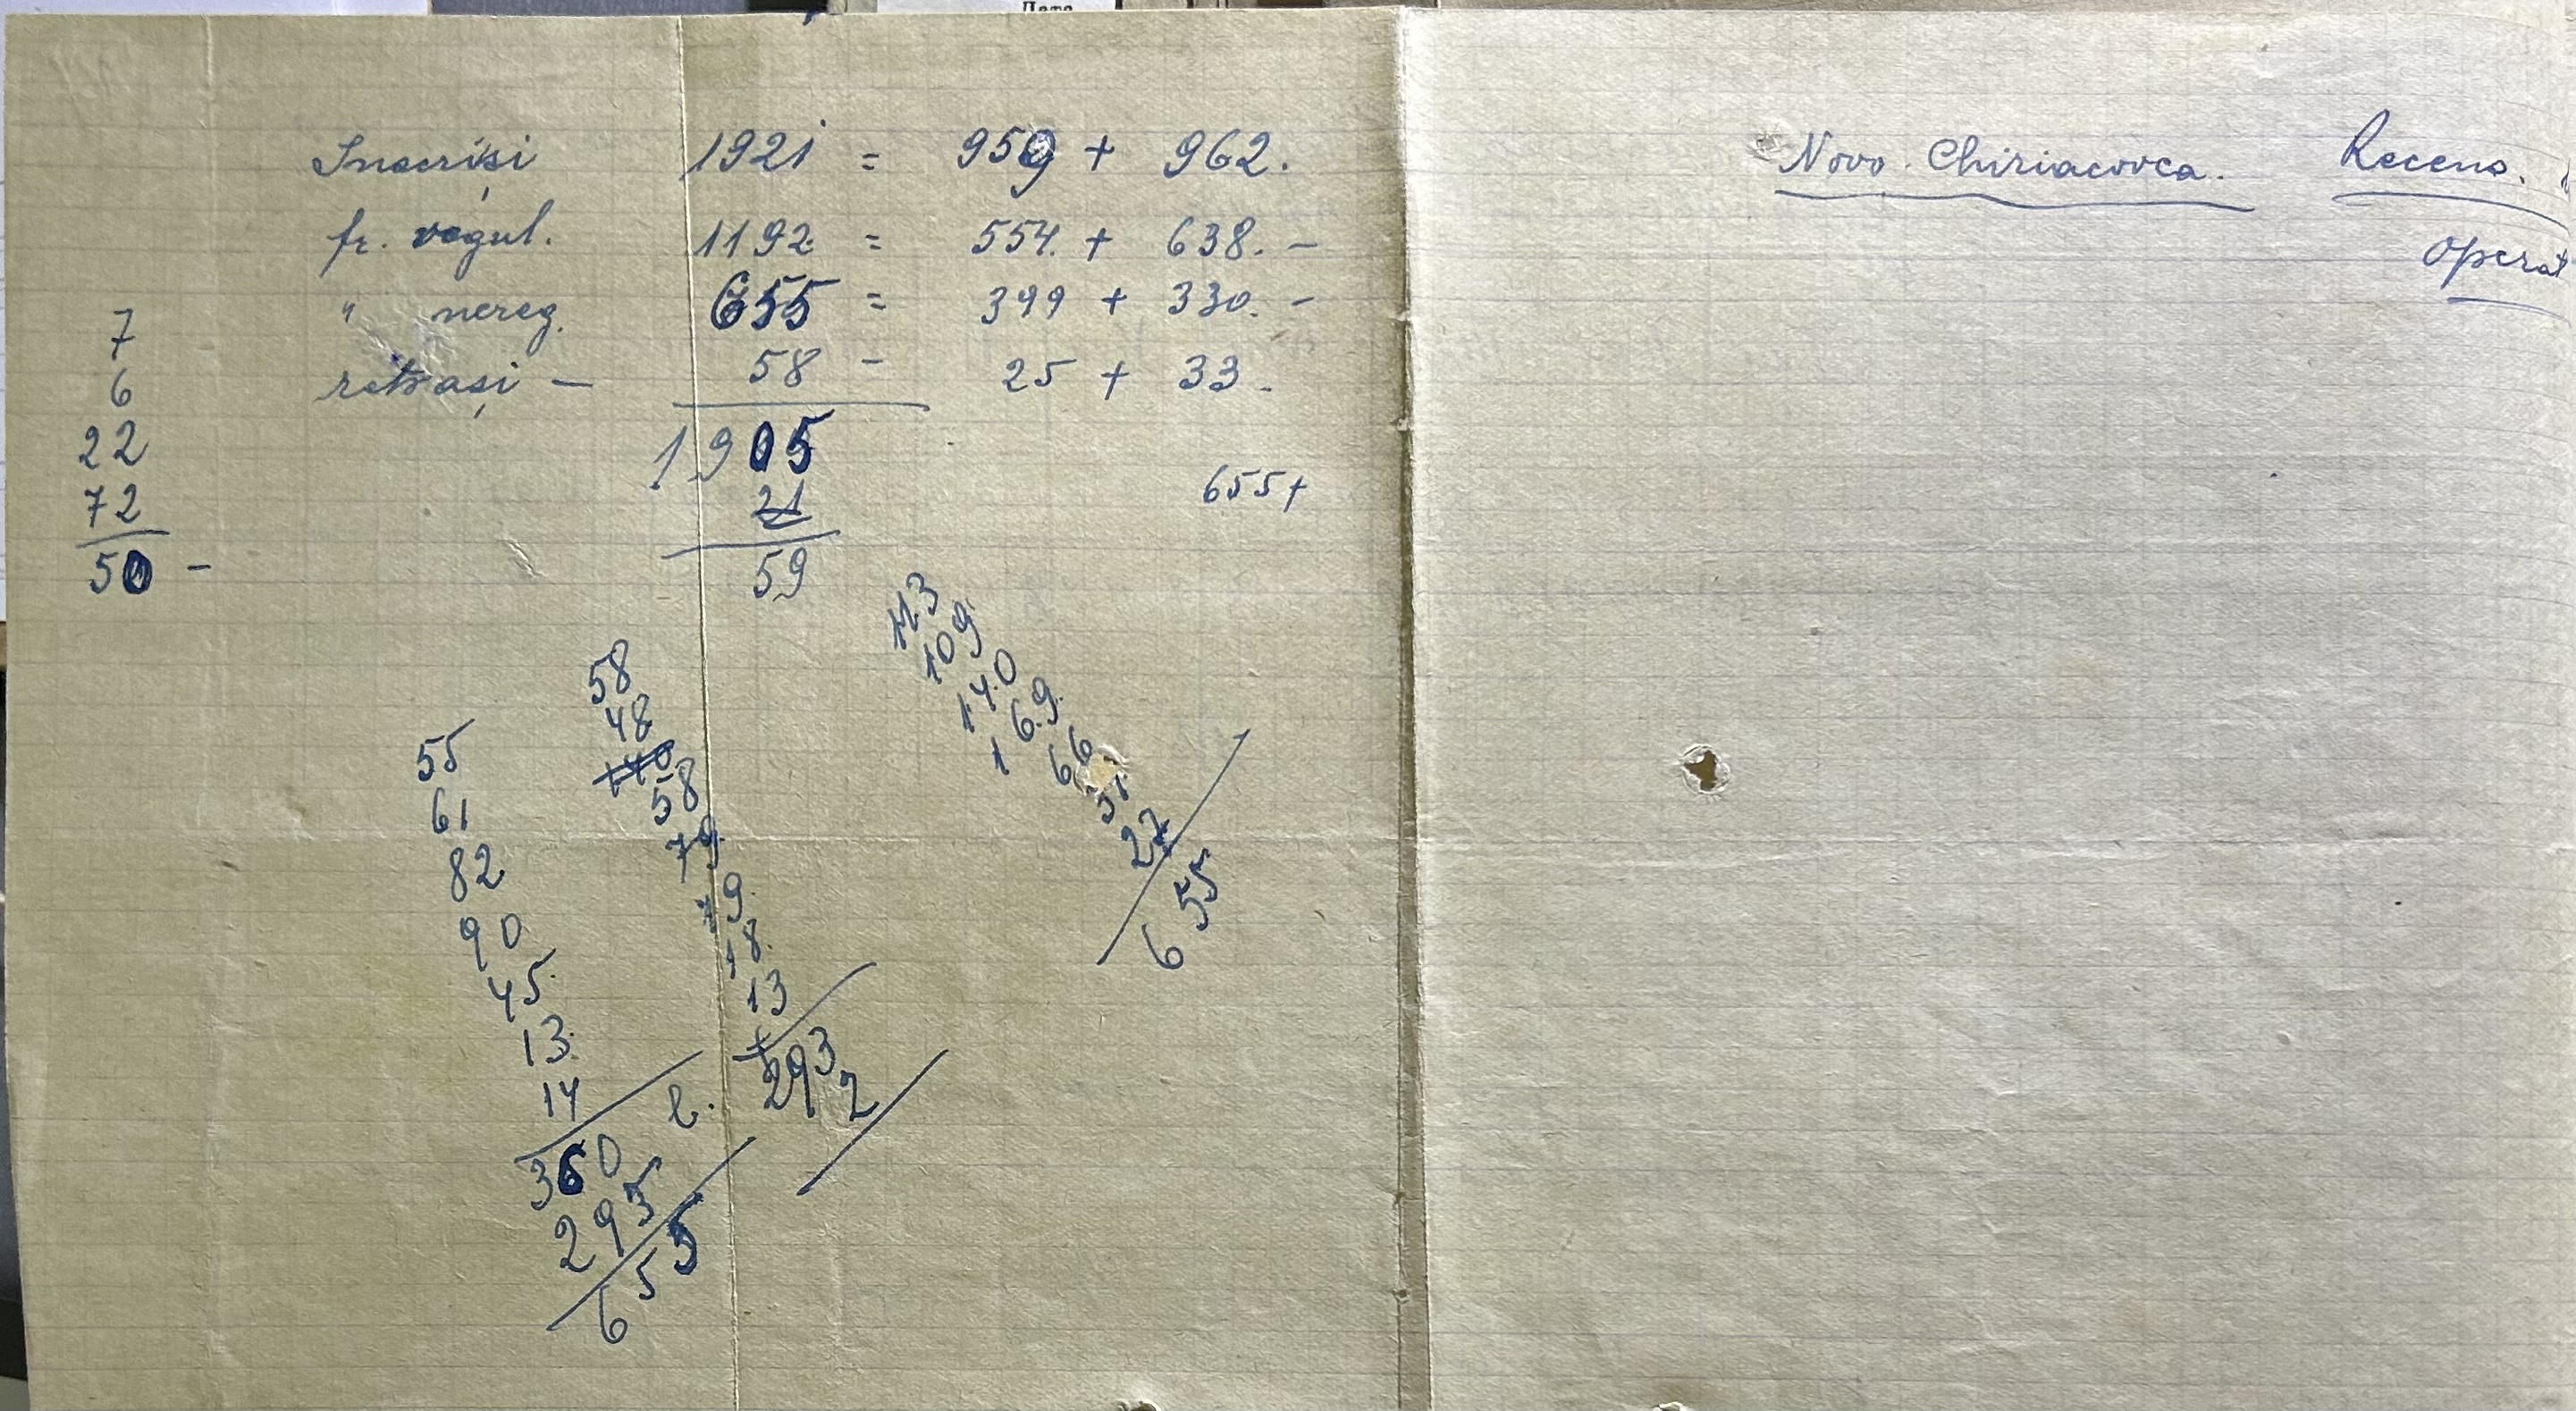 Дата
Înscriși 1921 = 959 + 962.
fr. regul. 1192 = 554. + 638. –
" nereg. 655 = 399 + 330. –
retrași – 58 – 25 + 33.
1905
21
59
655+
7
6
22
72
50 –
55
61
82
90
45.
13.
14
360
295
655
58
48
140
58
79.
19.
18.
13
293
2
113
109
140
169.
66
31.
27
655
Novo. Chiriacovca. Recens.
Operat